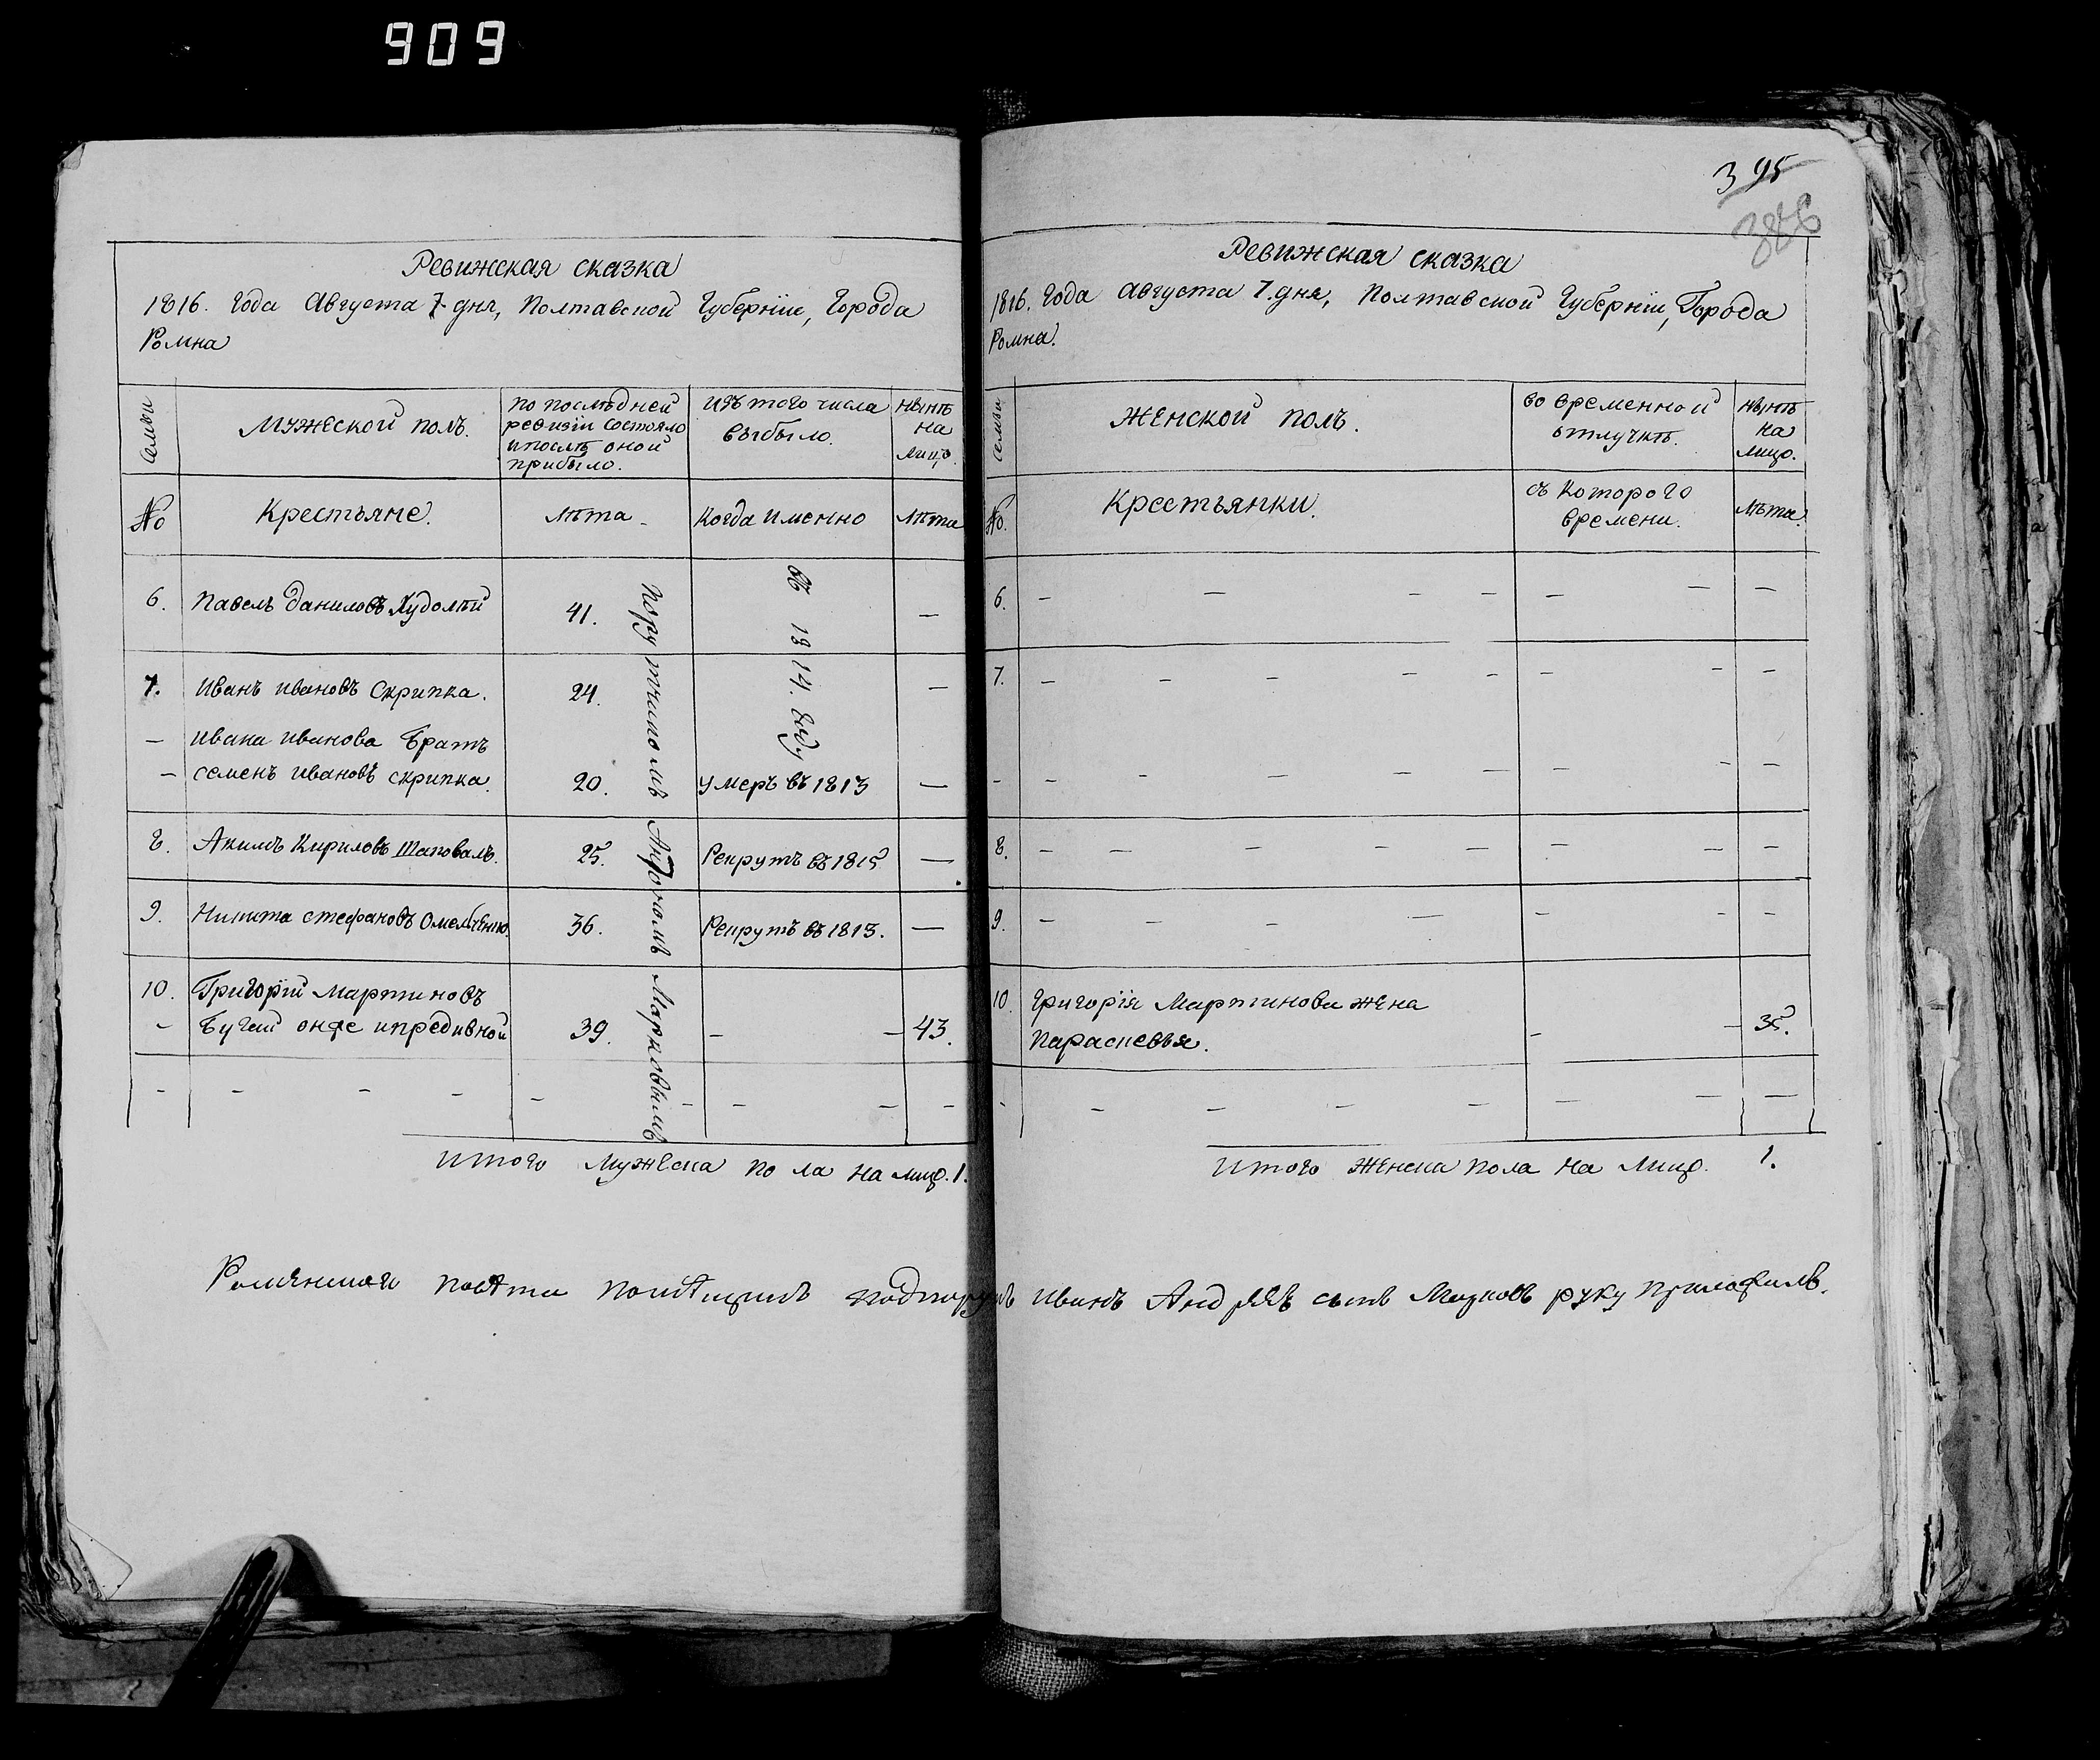 909
Ревижская сказка
1816. Года Августа 7 дня, Полтавской Губернїи, Города
Ромна
Семьи
Мужеской полъ.
по послѣдней
ревизіи состояло
и послѣ оной
прибыло.
изъ того числа
выбыло.
Нынѣ
на
лицо.
№
Крестьяне.
Лѣта
Когда именно
Лѣта
6. Павелъ Даниловъ Худолѣй 41. —
7. Иванъ Ивановъ Скрипка. 24. —
— Ивана Иванова Братъ
— Семенъ Ивановъ Скрипка. 20. умеръ въ 1813 —
8. Акимъ Кириловъ Шаповалъ. 25. Рекрутъ въ 1815 —
9. Никита Стефановъ Омельченко. 36. Рекрутъ въ 1813. —
10. Григорїй Мартиновъ
- Бугай онже 39. - - 43.
въ 1814. году
Марковымъ
Итого Мужеска пола на лицо. 1.
395
386
Ревижская сказка
1816. Года Августа 7. дня, Полтавской Губернїи, Города
Ромна.
Семьи
Женской полъ.
во временной
отлучкѣ.
Нынѣ
на
лицо.
№.
Крестьянки.
съ которого
времени.
Лѣта.
6. — — — — — — —
7. — — — — — — — —
8. — — — — — — — —
9. — — — — — — —
10. Григорїя Мартинова жена
Параскевья. - - 35.
Итого Женска пола на Лицо. 1.
Роменского повѣта помѣщикъ Иванъ Андреевъ сынъ Марковъ руку приложилъ.